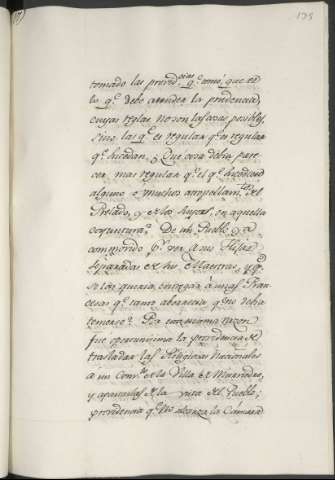 175
tomado las proved.cias q.e como, que es
lo q.e debe atender la prudencia,
cuyas reglas no son las cosas posibles,
sino las q.e es regular q.e es regular
q.e sucedan. ¿Que cosa debia pare
cer mas regular q.e el q.e sucediese
alguno o muchos atropellam.tos del
Prelado, y de los suyos, en aquella
coyuntura? De un Pueblo ya
conmovido p.r ver a sus Hijas
separadas de sus Maestras, y q.e
se las queria entregar a unas Fran
cesas q.e tanto aborrecia q.e no debia
temerse? Por esta misma razon
fue oportunisima la providencia de
trasladar las Religiosas Nacionales
a un Conv.to de la Villa de
y apartarlas de la vista del Pueblo;
providencia q.e no alcanza la Camara